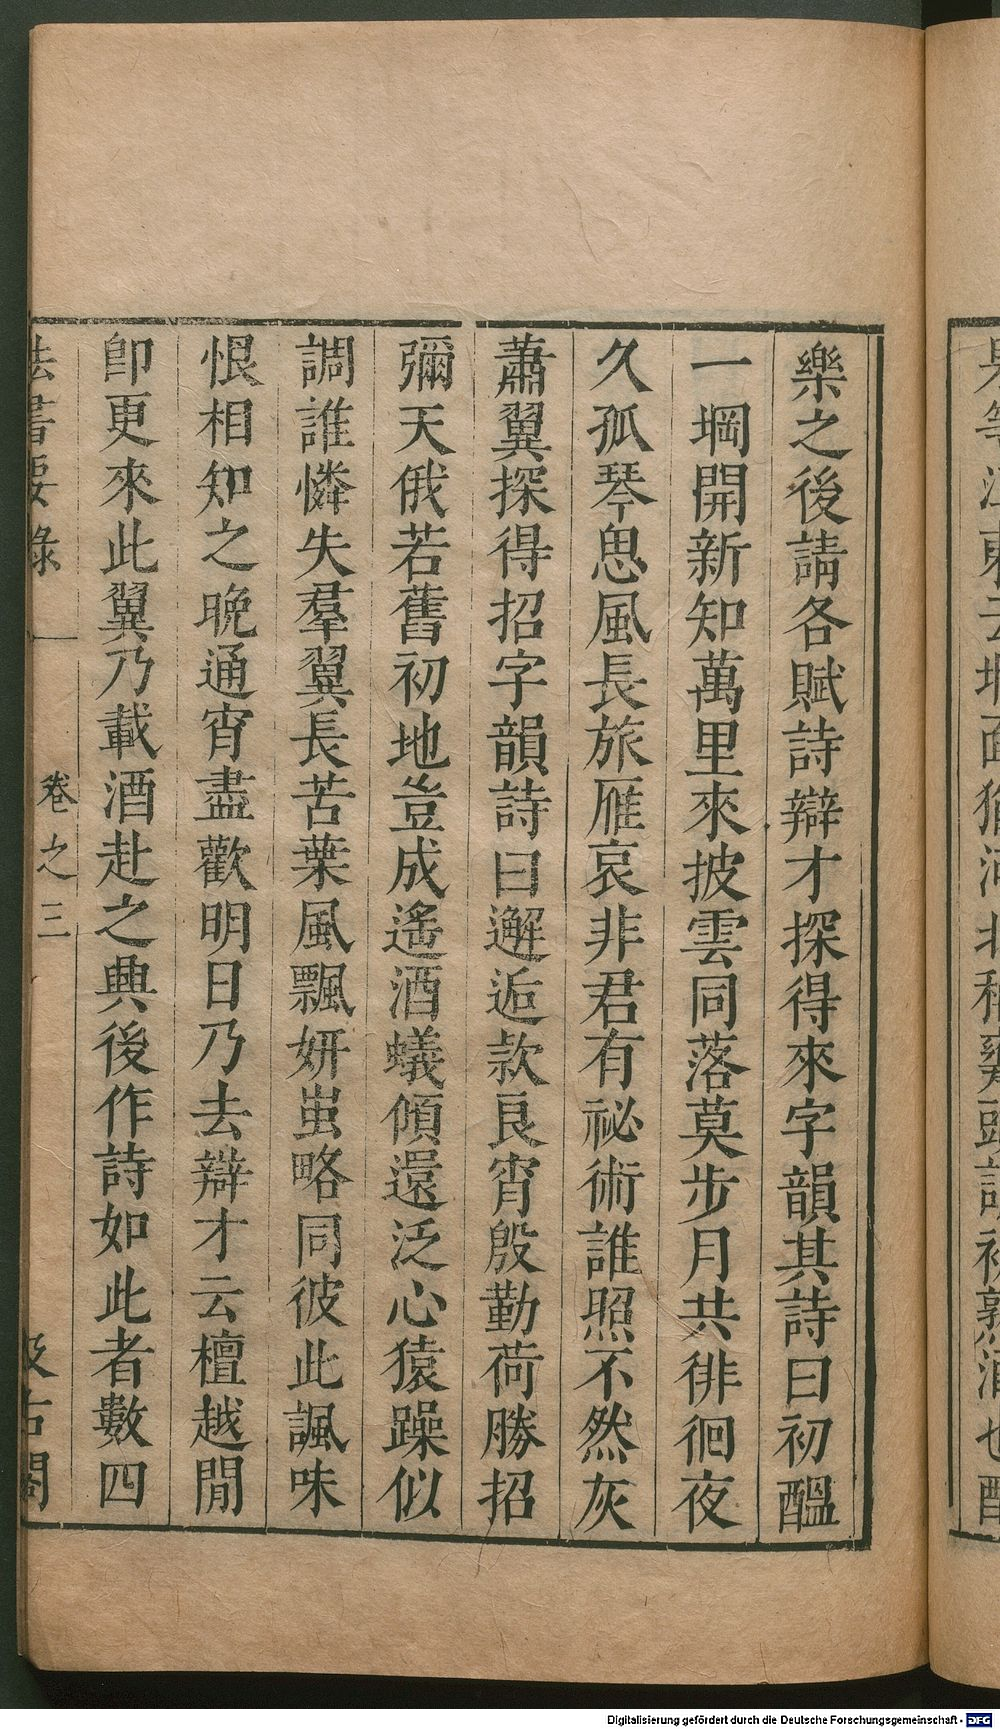 樂之後請各賦詩辯才探得來字韻其詩曰初醞
一㽏開新知萬里來披雲同落莫步月共徘徊夜
久孤琴思風長旅雁哀非君有祕術誰照不然灰
蕭翼探得招字韻詩曰邂逅款良宵殷勤荷勝招
彌天俄若舊初地豈成遙酒蟻傾還泛心猿躁似
調誰憐失羣翼長苦葉風飄妍蚩略同彼此諷味
恨相知之晚通宵盡歡明日乃去辯才云檀越閒
卽更來此翼乃載酒赴之興後作詩如此者數四
法書要錄 卷之三 汲古閣
Digitalisierung gefördert durch die Deutsche Forschungsgemeinschaft - DFG